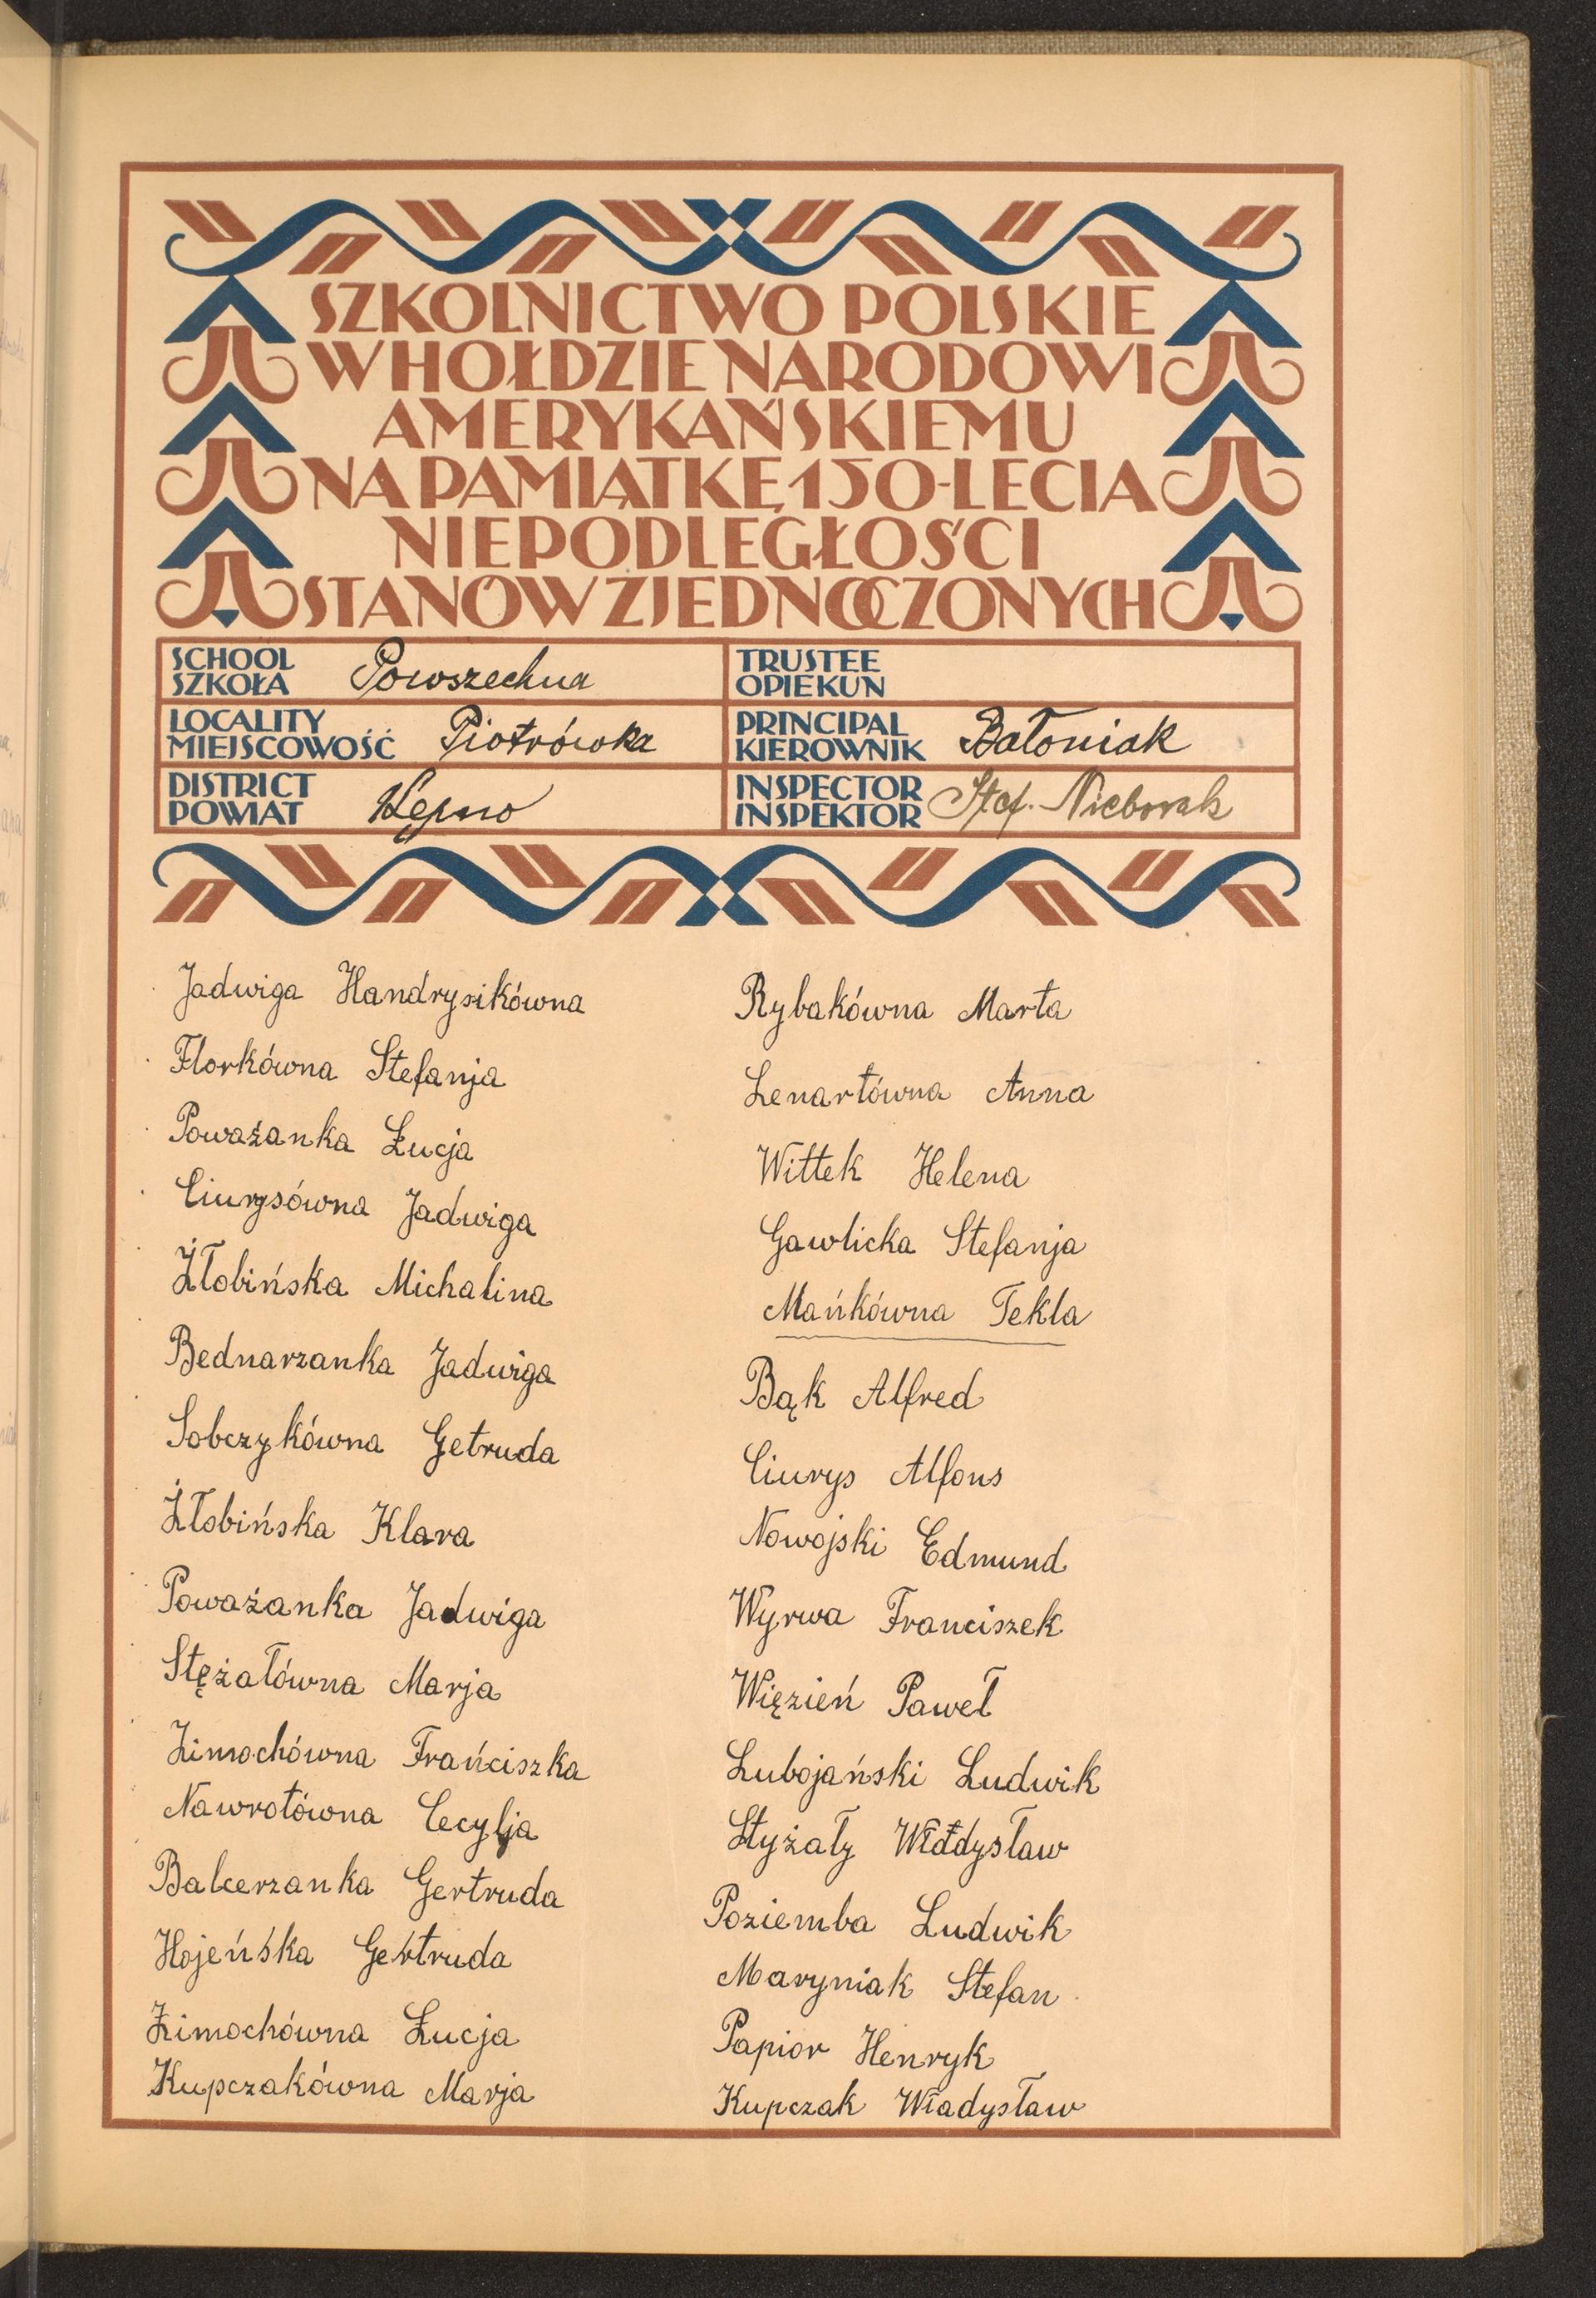 SZKOLNICTWO POLSKIE
W HOŁDZIE NARODOWI
AMERYKAŃSKIEMU
NA PAMIĄTKĘ 150-LECIA
NIEPODLEGŁOŚCI
STANÓW ZJEDNOCZONYCH
SCHOOL
SZKOŁA
Powszechna
TRUSTEE
OPIEKUN
LOCALITY
MIEJSCOWOŚĆ
Piotrówka
PRINCIPAL
KIEROWNIK
Bałoniak
DISTRICT
POWIAT
Kępno
INSPECTOR
INSPEKTOR
Stef. Nieborak
Jadwiga Handrysikówna
Florkówna Stefanja
Poważanka Łucja
Ciurysówna Jadwiga
Żłobińska Michalina
Bednarzanka Jadwiga
Sobczykówna Getruda
Żłobińska Klara
Poważanka Jadwiga
Stężałówna Marja
Zimochówna Frańciszka
Nawrotówna Cecylja
Balcerzanka Gertruda
Hojeńska Gertruda
Zimochówna Łucja
Kupczakówna Marja
Rybakówna Marta
Lenartówna Anna
Wittek Helena
Gawlicka Stefanja
Mańkówna Tekla
Bąk Alfred
Ciurys Alfons
Nowojski Edmund
Wyrwa Franciszek
Więzień Paweł
Lubojański Ludwik
Styżały Władysław
Poziemba Ludwik
Maryniak Stefan
Papior Henryk
Kupczak Władysław